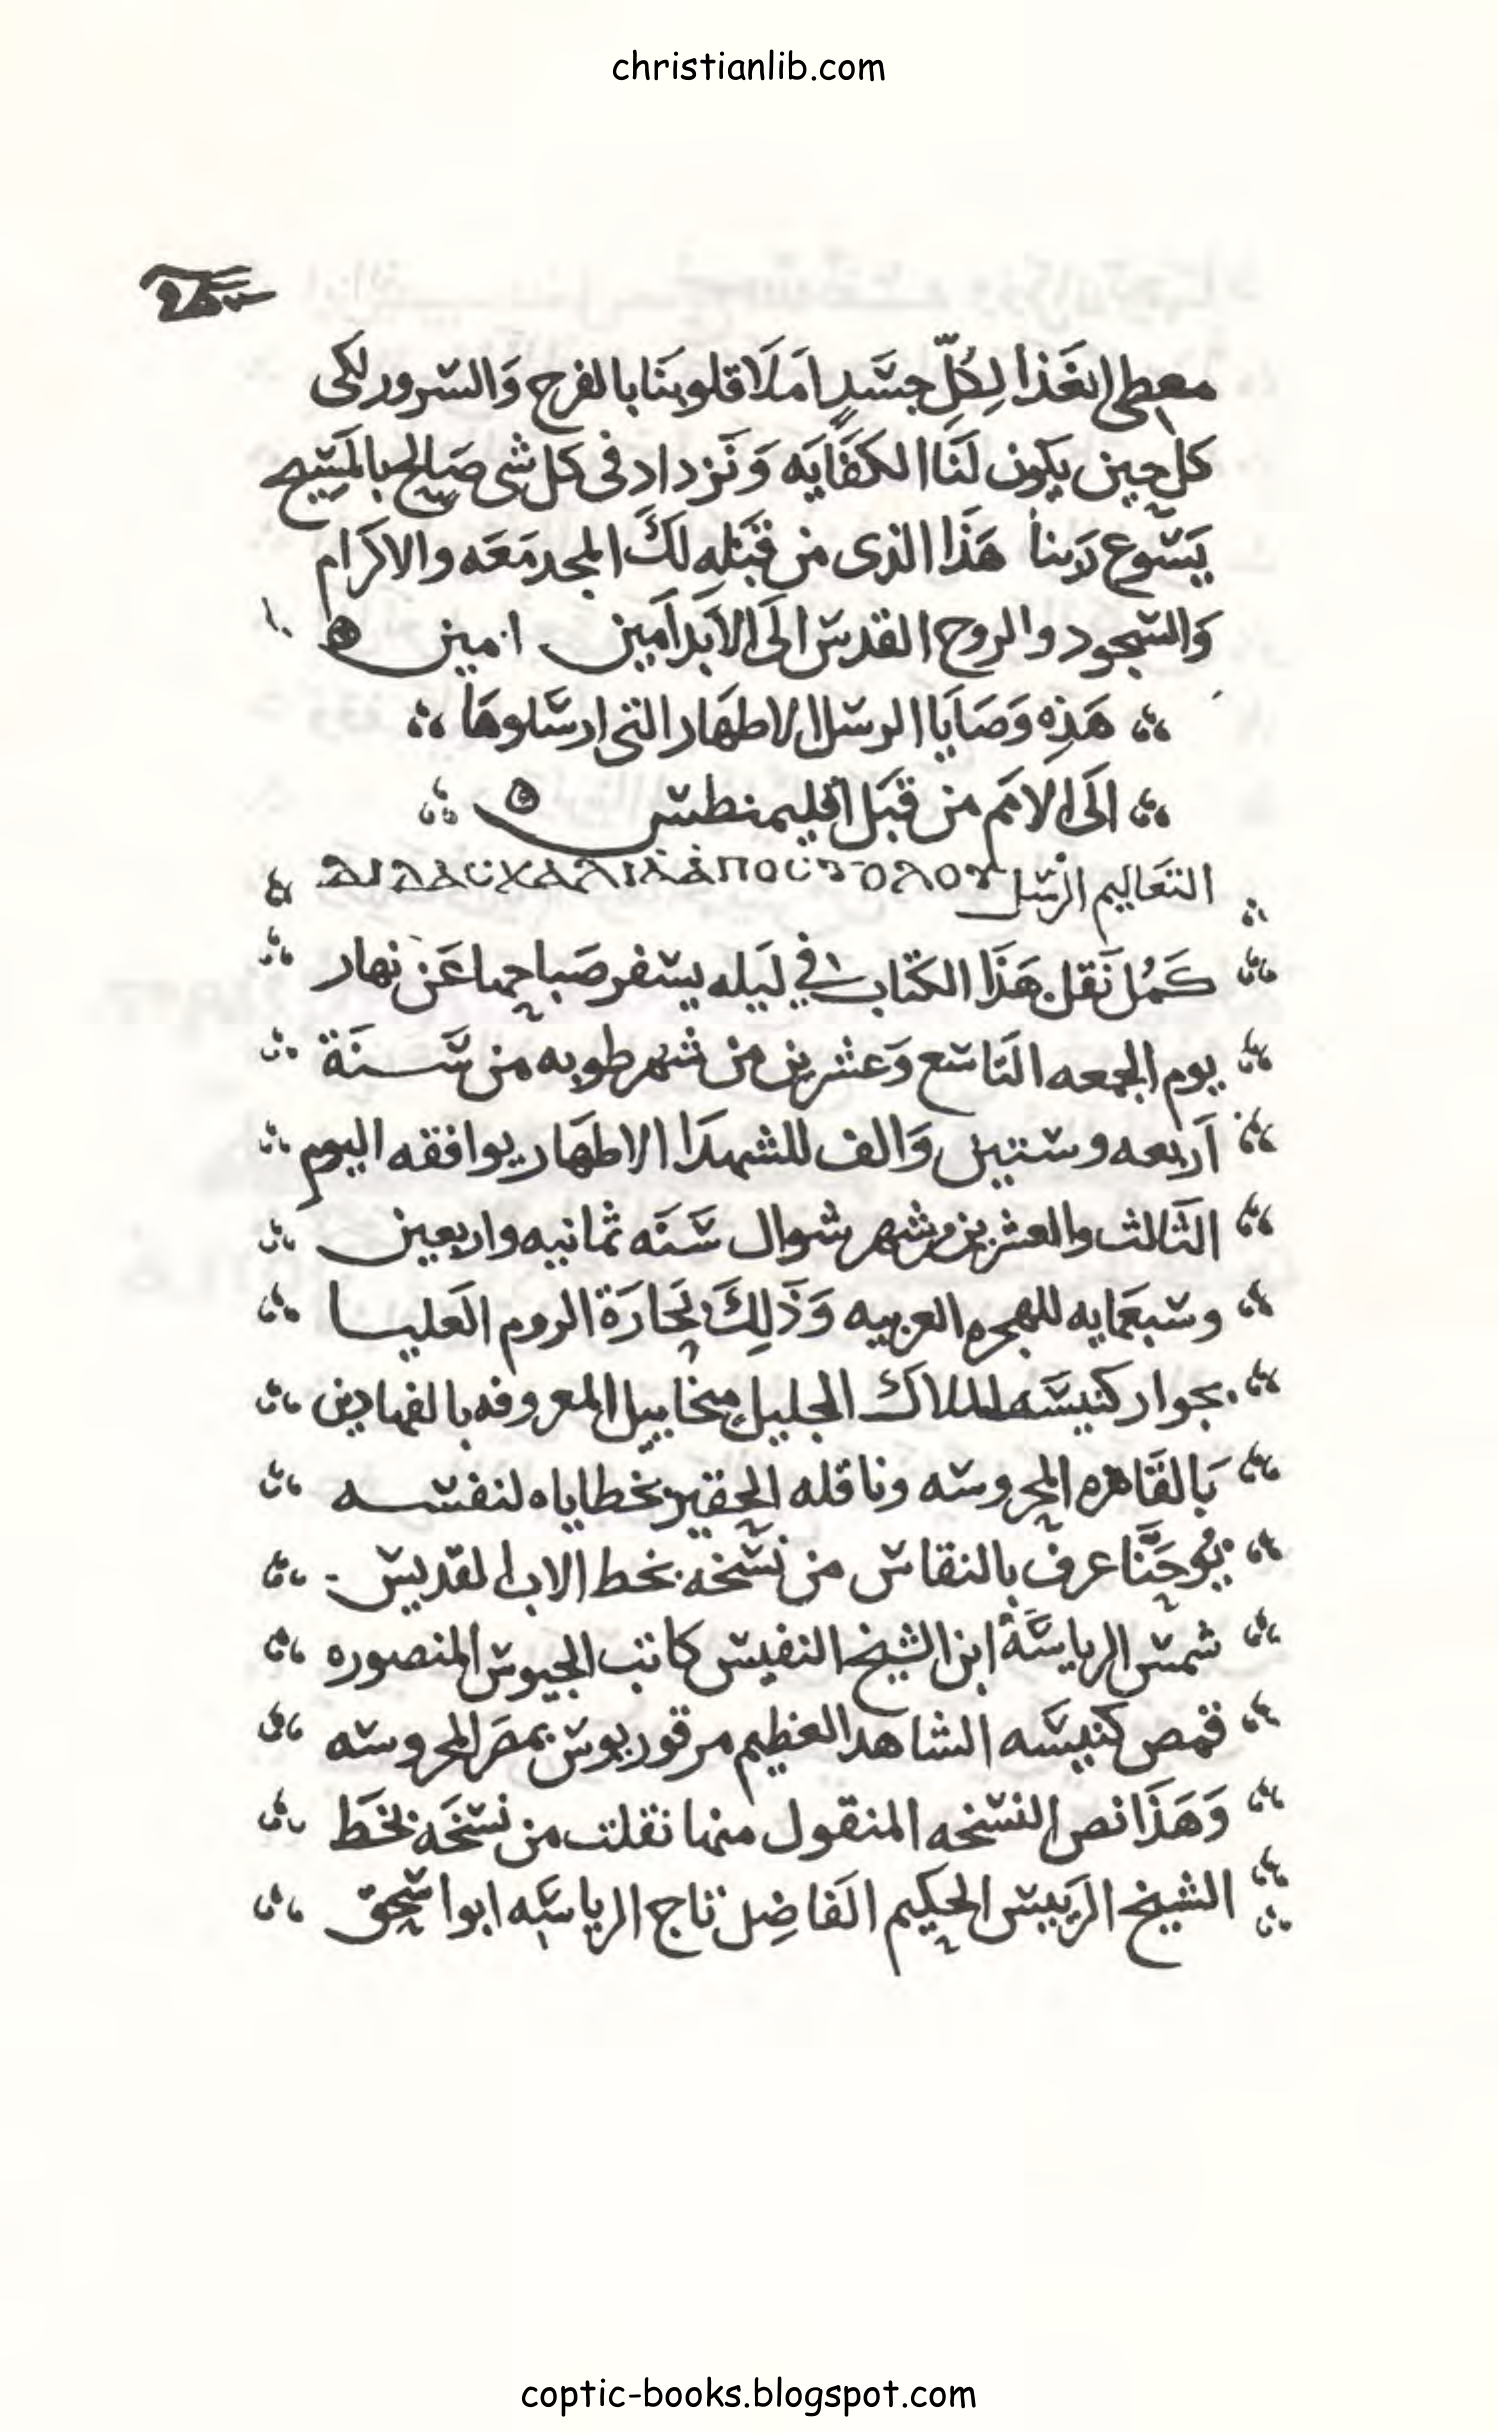 christianlib.com
معطى الغذا لِكُلّ جسَدٍ امَلَا قلوبنَا بالفرح وَالسرور لكى
كل حين يكون لَنَا الكفَايَه وَ نَزداد فى كل شى صَالح بالمَسِيح
يَسَوع رَبنا هَذَا الذى من قبَله لكَ المجد مَعَه والاكرَام
وَالسجود والروح القدس الَى الاَبَد اَمين امين
هَذِه وَصَايَا الرسل الاطهَار التى ارسَلوهَا
الَى الاَمَم من قبَل اقليمنطس
التعَاليم الرسل
كَمُل نَقل هَذَا الكتاب فى لَيله يسفر صَباحها عَن نهار
يوم الجمعه التَاسَع وَعشرين من شهر طوبه من سَنَة
اَربعه وستين وَالف للشهدَا الاطهَار يوافقه اليوم
الثَالث والعشرين من شهر شوال سَنَه ثمانيه واربعين
وسبعمَايه للهجره العربيه وَذَلِكَ بحَارَة الروم العَليا
بجوار كنيسَه الملاكَ الجليل ميخاييل المعروفه بالفهادين
بَالقَاهره المحروسه وناقله الحقير بخطاياه لنفسه
يُوحَنَّا عرف بالنقاش من نسَخه بخط الاب القديس
شمس الرياسَة ابن الشيخ النفيس كاتب الجيوش المنصوره
قمص كنيسَه الشاهد العظيم مرقوريوس بمصَر المحروسه
وَهَذَا نص النسخه المنقول منها نقلت من نسخَه بخَط
الشيخ الرَييس الحكيم الفَاضِل تاج الرياسَه ابوا سَحق
coptic-books.blogspot.com